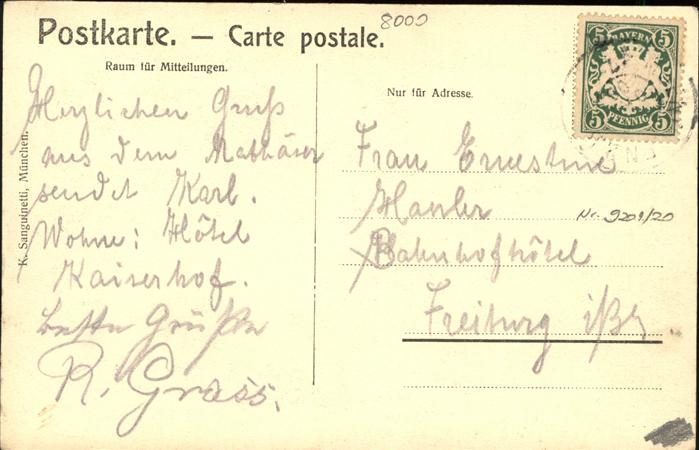 8000
Postkarte. — Carte postale.
Raum für Mitteilungen.
Herzlichen Gruß
aus dem Mathäser
sendet Karl.
Wohne: Hôtel
Kaiserhof.
beste Grüße
R. Grass.
K. Sanguinetti, München.
Nur für Adresse.
BAYERN
5 5
5 5
PFENNIG
Frau Ernestine
Hanler
Nr. 9201/20
Bahnhofhôtel
Freiburg i/Br